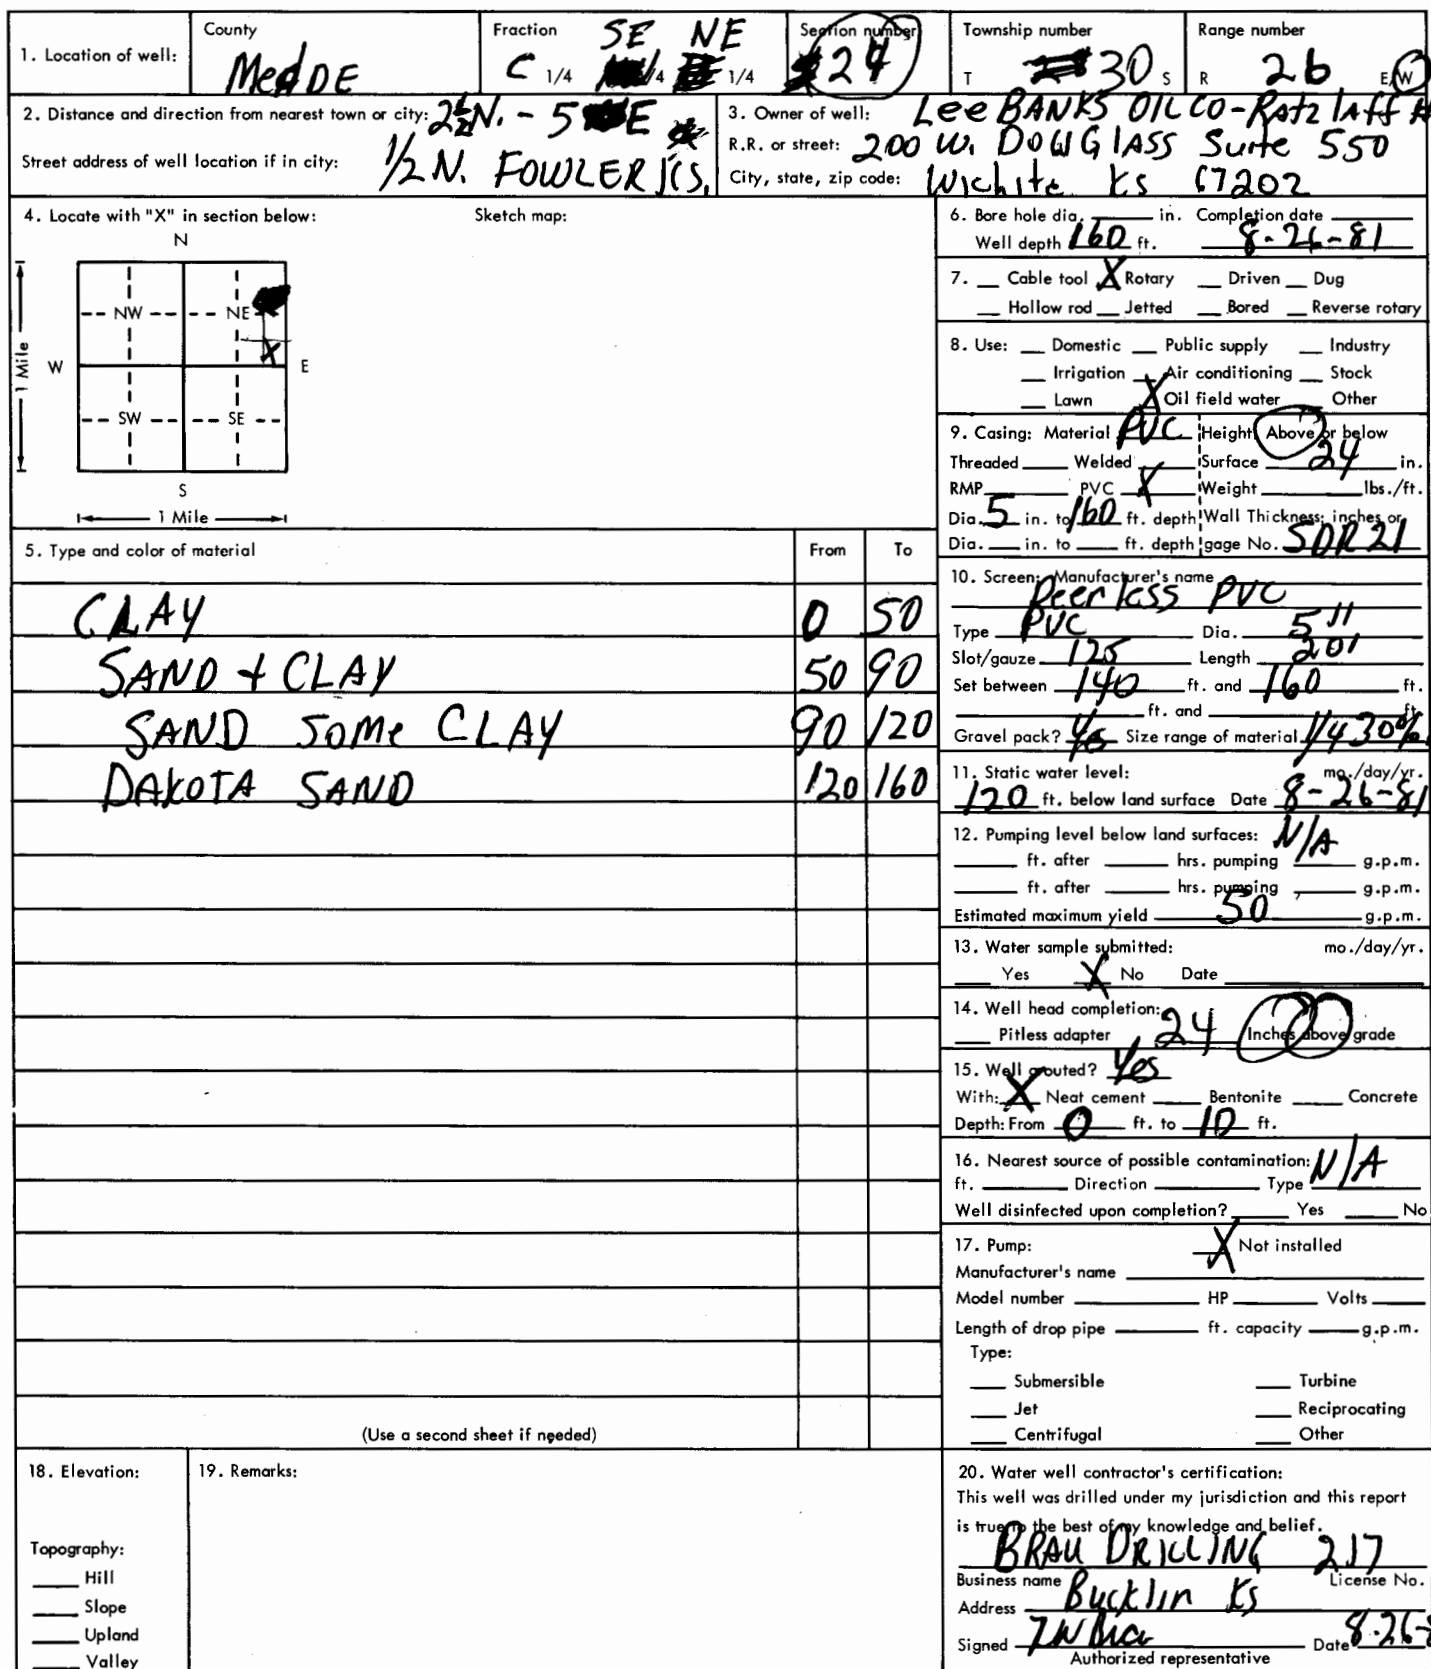 1. Location of well:
County
MeadDE
Fraction
SE NE
C 1/4 1/4 1/4
Section number
24
Township number
T 30 S
Range number
R 26 E/W
2. Distance and direction from nearest town or city: 2½N. - 5 E
Street address of well location if in city: 1/2 N. FOWLER KS.
3. Owner of well: Lee BANKS OIL CO-Ratzlaff
R.R. or street: 200 W. DOUGlASS Suite 550
City, state, zip code: Wichita Ks 67202
4. Locate with "X" in section below:
Sketch map:
N
NW NE
X
W E
SW SE
S
1 Mile
1 Mile
5. Type and color of material From To
CLAY 0 50
SAND + CLAY 50 90
SAND Some CLAY 90 120
DAKOTA SAND 120 160
(Use a second sheet if needed)
6. Bore hole dia. ____ in. Completion date
Well depth 160 ft. 8-26-81
7. __ Cable tool X Rotary __ Driven __ Dug
__ Hollow rod __ Jetted __ Bored __ Reverse rotary
8. Use: __ Domestic __ Public supply __ Industry
__ Irrigation __ Air conditioning __ Stock
__ Lawn X Oil field water __ Other
9. Casing: Material PVC Height: Above or below
Threaded ____ Welded ____ Surface 24 in.
RMP ____ PVC X Weight ____ lbs./ft.
Dia. 5 in. to 160 ft. depth Wall Thickness: inches or
Dia. ___ in. to ___ ft. depth gage No. SDR 21
10. Screen: Manufacturer's name
Peerless PVC
Type PVC Dia. 5"
Slot/gauze 125 Length 20'
Set between 140 ft. and 160 ft.
____ ft. and ____ ft.
Gravel pack? Yes Size range of material 1/4 30%
11. Static water level: mo./day/yr.
120 ft. below land surface Date 8-26-81
12. Pumping level below land surfaces: N/A
____ ft. after ____ hrs. pumping ____ g.p.m.
____ ft. after ____ hrs. pumping ____ g.p.m.
Estimated maximum yield 50 g.p.m.
13. Water sample submitted: mo./day/yr.
___ Yes X No Date
14. Well head completion:
___ Pitless adapter 24 Inches above grade
15. Well grouted? Yes
With: X Neat cement ___ Bentonite ___ Concrete
Depth: From 0 ft. to 10 ft.
16. Nearest source of possible contamination: N/A
ft. ____ Direction ____ Type
Well disinfected upon completion? ____ Yes ____ No
17. Pump: X Not installed
Manufacturer's name
Model number ____ HP ____ Volts
Length of drop pipe ____ ft. capacity ____ g.p.m.
Type:
___ Submersible ___ Turbine
___ Jet ___ Reciprocating
___ Centrifugal ___ Other
18. Elevation:
Topography:
___ Hill
___ Slope
___ Upland
___ Valley
19. Remarks:
20. Water well contractor's certification:
This well was drilled under my jurisdiction and this report
is true to the best of my knowledge and belief.
BRAU DRILLING 217
Business name License No.
Address Bucklin Ks
Signed Date 8-26-8
Authorized representative